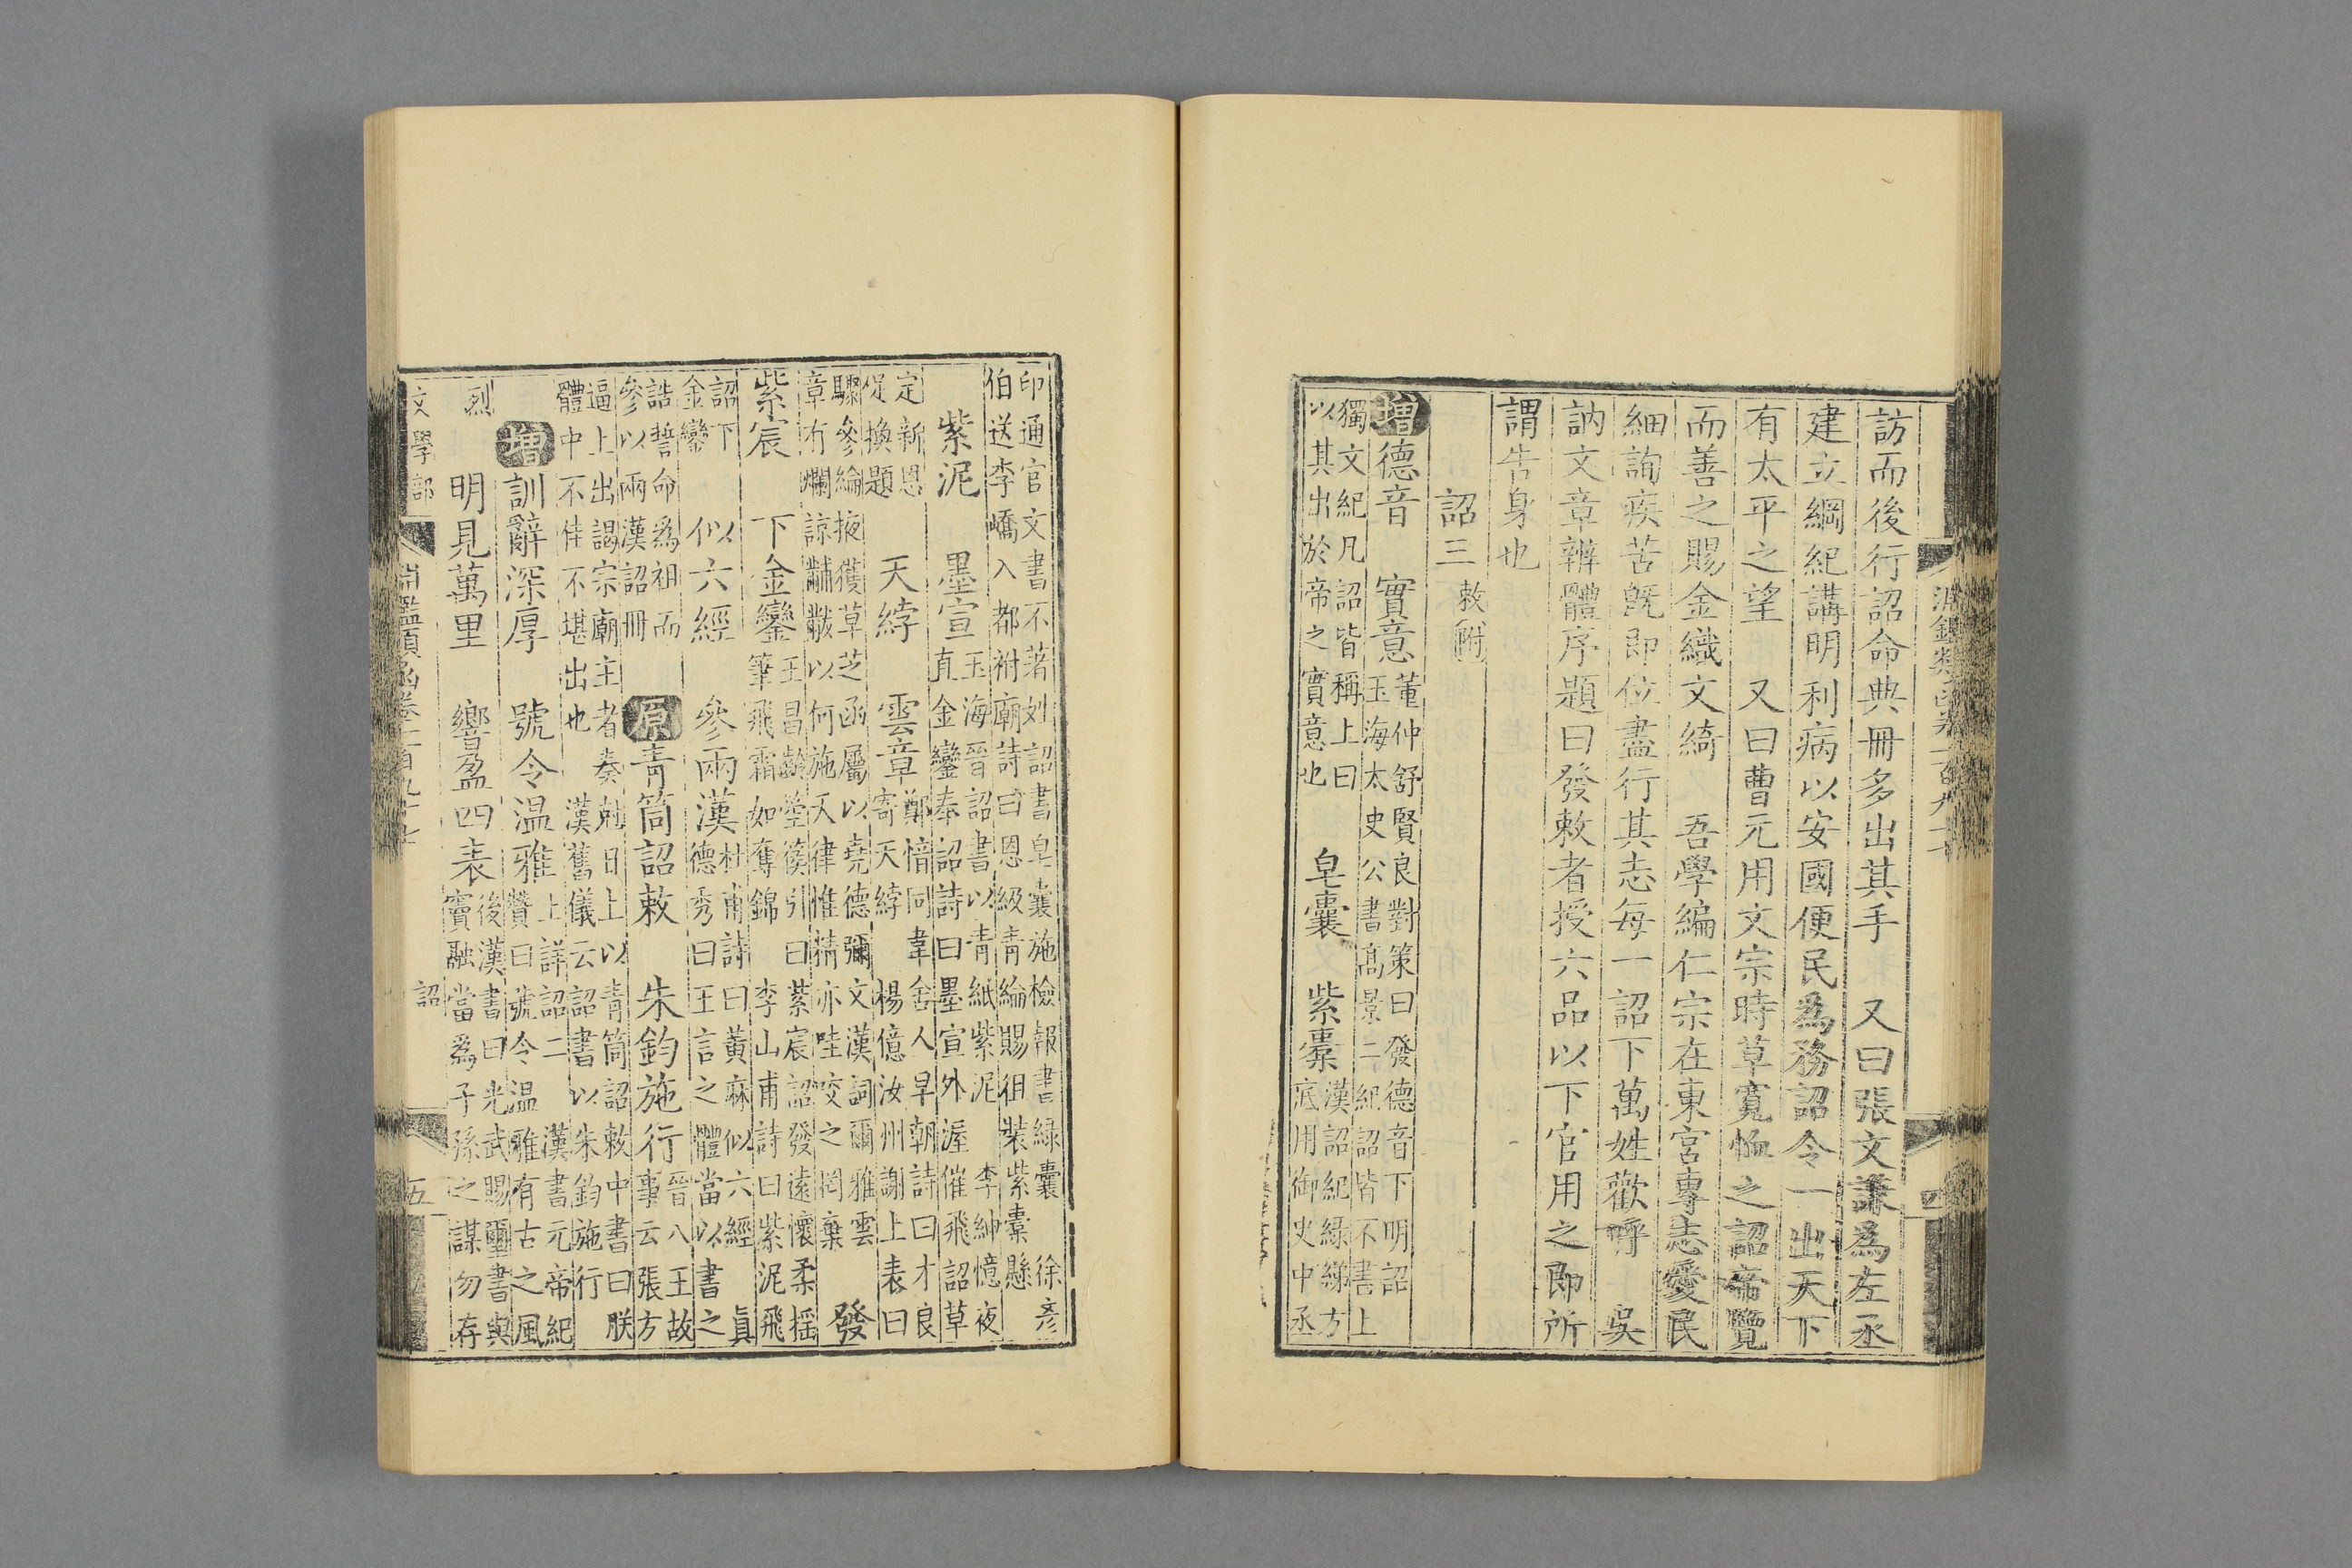 訪而後行詔命典冊多出其手　又曰張文謙爲左丞
建立綱紀講明利病以安國便民爲務詔令一出天下
有太平之望　又曰曹元用文宗時草寬恤之詔帝覽
而善之賜金織文綺　吾學編仁宗在東宮專志愛民
細詢疾苦旣卽位盡行其志每一詔下萬姓歡呼　吳
訥文章辨體序題曰發敕者授六品以下官用之卽所
謂告身也
詔三敕附
增德音　實意董仲舒賢良對策曰發德音下明詔
玉海太史公書高景二紀詔皆不書上
獨文紀凡詔皆稱上曰
以其出於帝之實意也　皁囊　紫橐漢詔紀綠綈方
底用御史中丞
印通官文書不著姓詔書皁囊施檢報書綠囊　徐彥
伯送李嶠入都祔廟詩曰恩級青綸賜徂裝紫橐懸
紫泥　墨宣玉海晉詔書以青紙紫泥　李紳憶夜
直金鑾奉詔詩曰墨宣外渥催飛詔草
定新恩
促換題　天綍　雲章鄭愔同韋舍人早朝詩曰才良
寄天綍　楊億汝州謝上表曰
驟參綸掖僕草芝函屬以堯德彌文漢詞爾雅雲
章冇爛諒黼黻以何施天律惟精亦哇咬之罔棄　發
紫宸　下金鑾王昌齡箜篌引曰紫宸詔發遠懷柔搖
筆飛霜如奪錦　李山甫詩曰紫泥飛
詔下
金鑾　似六經　參兩漢杜甫詩曰黃麻似六經　眞
德秀曰王言之體當以書之
誥誓命爲祖而
參以兩漢詔冊　原青筒詔敕　朱鈞施行事晉八王故
云張方
逼上出謁宗廟主者奏剋日上以青筒詔敕中書曰朕
體中不佳不堪出也　漢舊儀云詔書以朱鈞施行
增訓辭深厚　號令温雅上詳詔二　漢書元帝紀
贊曰號令温雅有古之風
烈　明見萬里　響盈四表後漢書曰光武賜璽書與
竇融當爲子孫之謀勿存
文學部　淵鑑類函卷一百九十七　詔　五